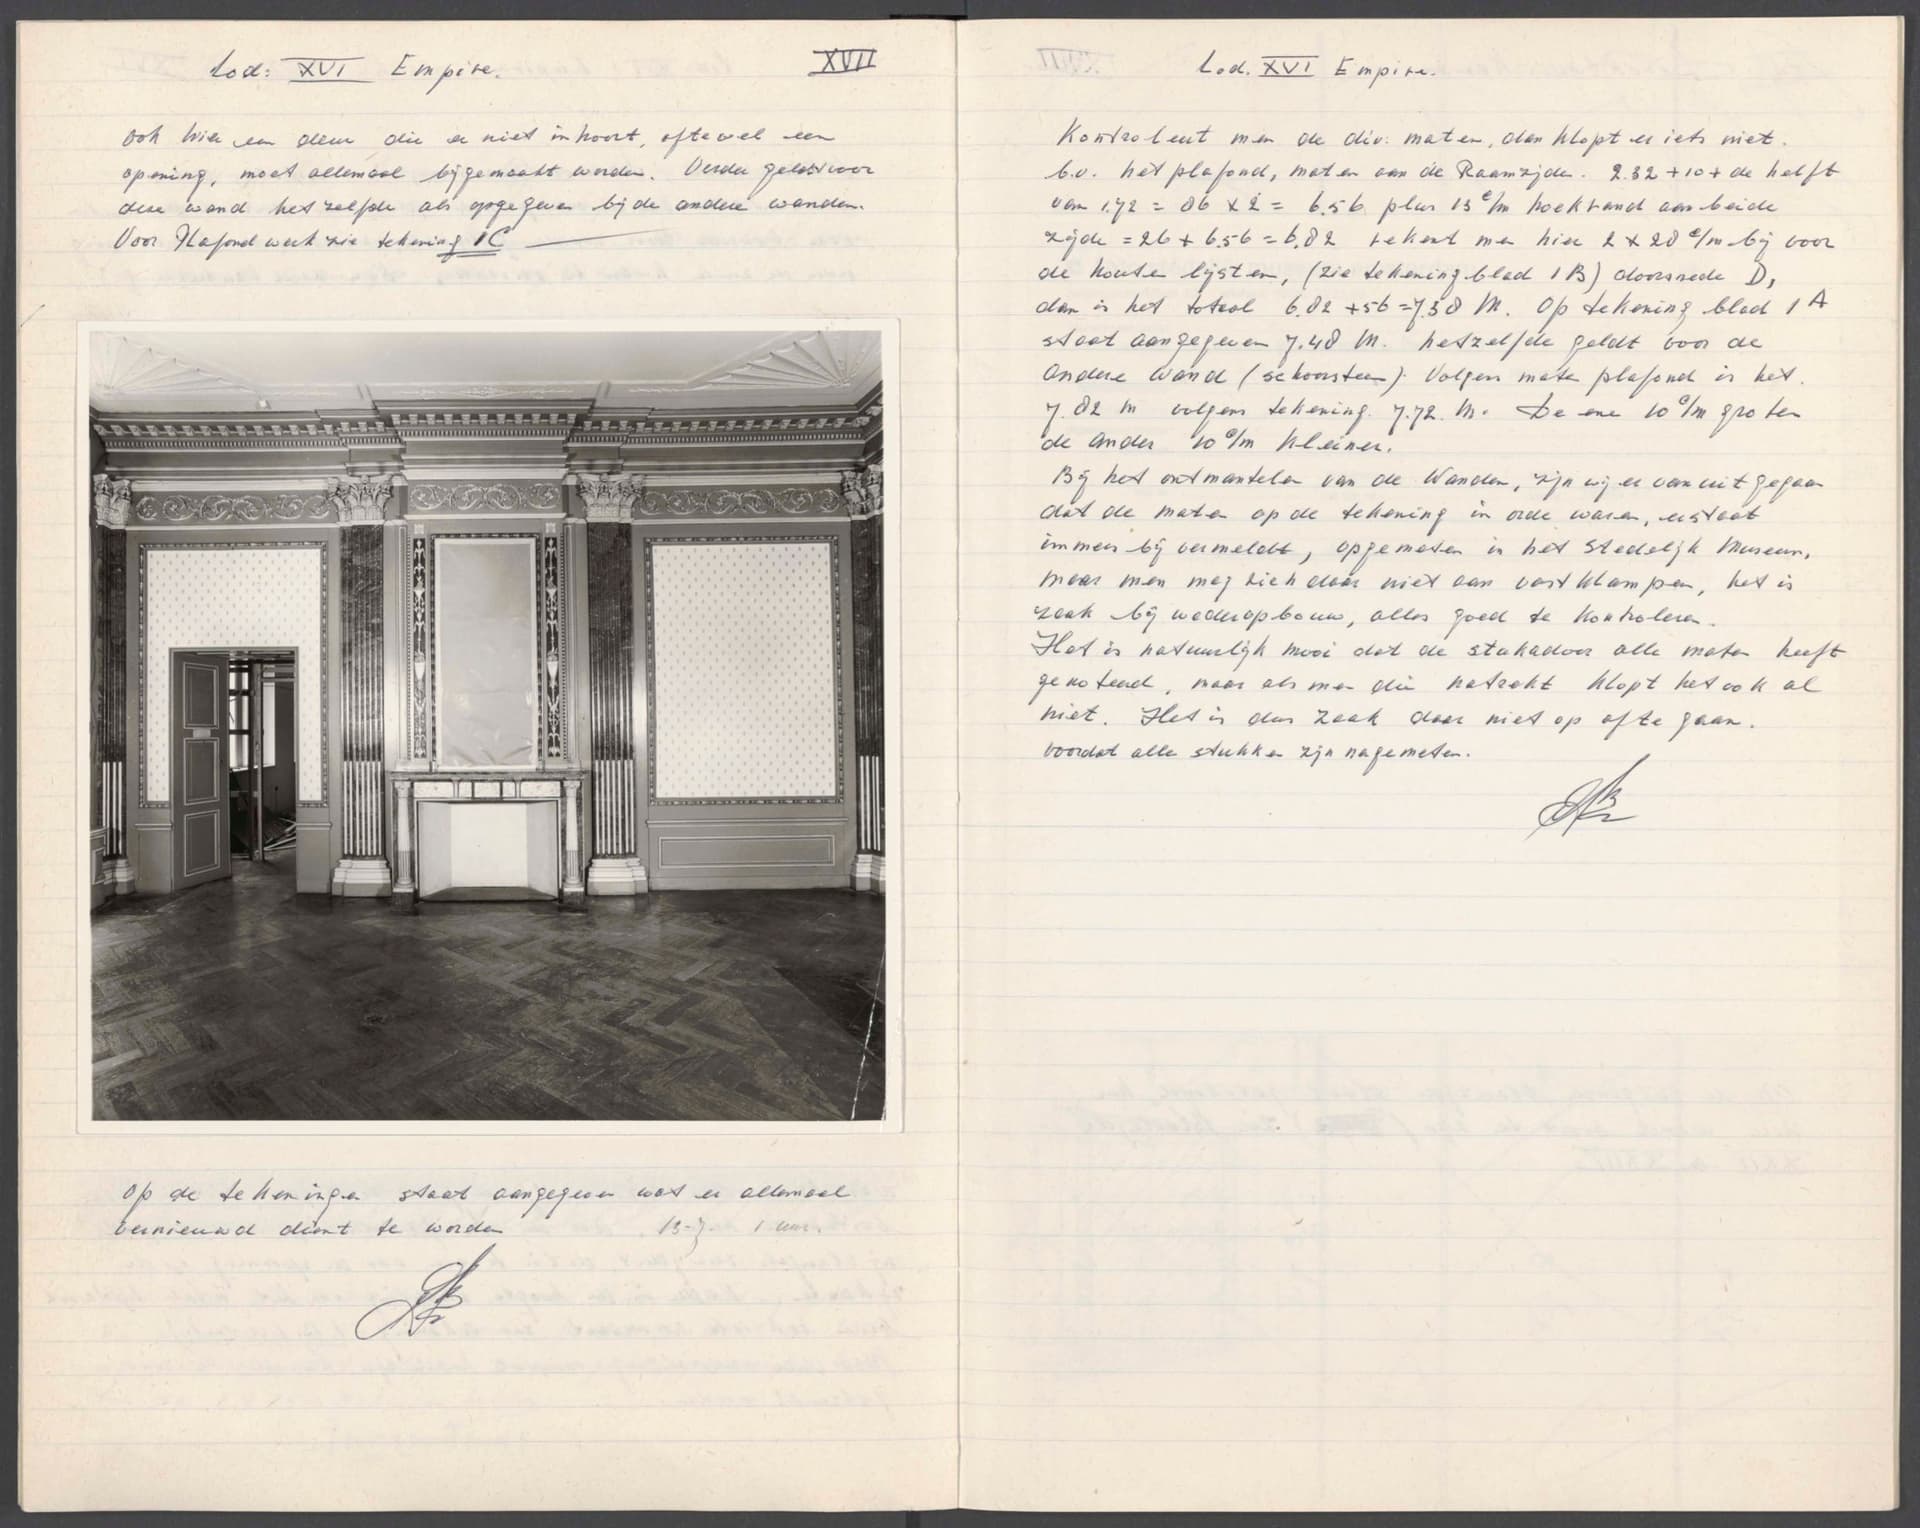 Lod: XVI Empire.
XVII
ook hier een deur die er niet in hoort, oftewel een
opening, moet allemaal bijgemaakt worden. Verder geldt voor
deze wand het zelfde als opgegeven bij de andere wanden.
Voor Plafond werk zie tekening 1C
Op de tekeningen staat aangegeven wat er allemaal
vernieuwd dient te worden 13-7. 1 uur.
Lod. XVI Empire.
Kontroleert men de div: maten, dan klopt er iets niet.
b.v. het plafond, maten aan de Raamzijde. 2.32 + 10 + de helft
van 1.72 = 86 x 2 = 6.56 plus 13 c/m hoekrand aan beide
zijde = 26 + 6.56 = 6.82 rekent men hier 2 x 28 c/m bij voor
de houten lijsten, (zie tekening blad 1 B) doorsnede D,
dan is het totaal 6.82 + 56 = 7.38 M. Op tekening blad 1 A
staat aangegeven 7.48 M. hetzelfde geldt voor de
andere wand (schoorsteen). Volgens maten plafond is het.
7.82 m volgens tekening. 7.72. M. De ene 10 c/m groter
de ander 10 c/m kleiner.
Bij het ontmantelen van de Wanden, zijn wij er van uit gegaan
dat de maten op de tekening in orde waren, er staat
immers bij vermeldt, opgemeten in het Stedelijk Museum.
maar men mag zich daar niet aan vastklampen, het is
zaak bij wederopbouw, alles goed te kontroleren.
Het is natuurlijk mooi dat de stukadoor alle maten heeft
genoteerd, maar als men die natrekt klopt het ook al
niet. Het is dus zaak daar niet op af te gaan.
voordat alle stukken zijn nagemeten.